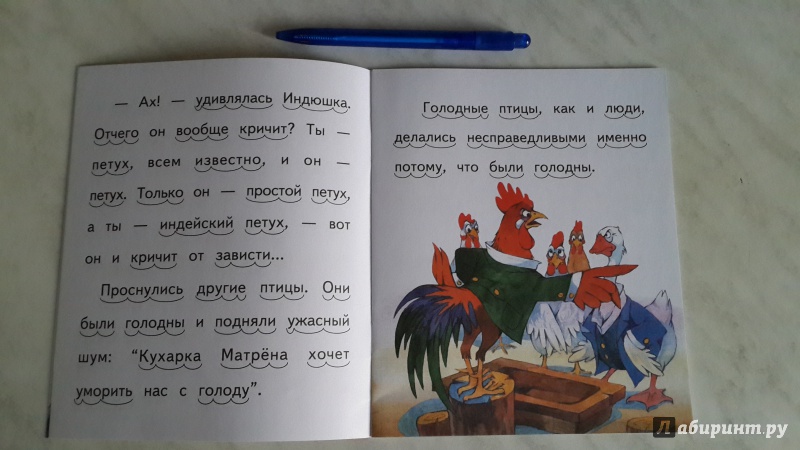 — Ах! — удивлялась Индюшка.
Отчего он вообще кричит? Ты —
петух, всем известно, и он —
петух. Только он — простой петух,
а ты — индейский петух, — вот
он и кричит от зависти...
Проснулись другие птицы. Они
были голодны и подняли ужасный
шум: “Кухарка Матрёна хочет
уморить нас с голоду”.
Голодные птицы, как и люди,
делались несправедливыми именно
потому, что были голодны.
Лабиринт.ру